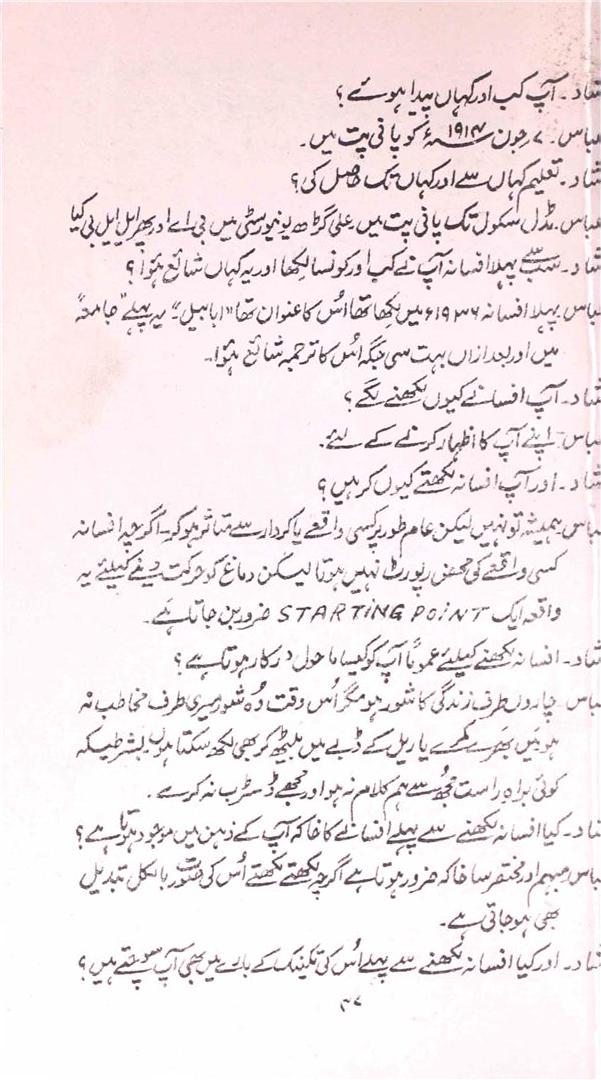 شاد۔ آپ کب اور کہاں پیدا ہوئے؟
عباس۔ ۷؍جون ۱۹۱۴ء کو پانی پت میں۔
شاد۔ تعلیم کہاں سے اور کہاں تک حاصل کی؟
عباس۔ مڈل اسکول تک پانی پت میں۔ علی گڑھ یونیورسٹی میں بی اے اور پھر ایل ایل بی کیا
شاد۔ سب سے پہلا افسانہ آپ نے کب اور کونسا لکھا اور یہ کہاں شائع ہؤا؟
عباس۔ پہلا افسانہ ۱۹۳۶ء میں لکھا تھا اُس کا عنوان تھا "ابابیل"۔ یہ پہلے "جامعہ"
میں اور بعد ازاں بہت سی جگہ اُس کا ترجمہ شائع ہؤا۔
شاد۔ آپ افسانے کیوں لکھنے لگے؟
عباس۔ اپنے آپ کا اظہار کرنے کے لئے۔
شاد۔ اور آپ افسانہ لکھتے کیوں کر ہیں؟
عباس۔ ہمیشہ تو نہیں لیکن عام طور پر کسی واقعے یا کردار سے متاثر ہو کر۔ اگرچہ افسانہ
کسی واقعے کی محض رپورٹ نہیں ہوتا لیکن دماغ کو حرکت دینے کیلئے یہ
واقعہ ایک STARTING POINT ضرور بن جاتا ہے۔
شاد۔ افسانہ لکھنے کیلئے عموماً آپ کو کیسا ماحول درکار ہوتا ہے؟
عباس۔ چاروں طرف زندگی کا شور ہو مگر اُس وقت وُہ شور میری طرف مخاطب نہ
ہو۔ میں بھرے کمرے یا ریل کے ڈبے میں بیٹھ کر بھی لکھ سکتا ہوں بشرطیکہ
کوئی براہِ راست مجھ سے ہم کلام نہ ہو اور مجھے ڈسٹرب نہ کرے۔
شاد۔ کیا افسانہ لکھنے سے پہلے افسانے کا خاکہ آپ کے ذہن میں موجود ہوتا ہے؟
عباس۔ مبہم اور مختصر سا خاکہ ضرور ہوتا ہے اگرچہ لکھتے لکھتے اُس کی صورت بالکل تبدیل
بھی ہو جاتی ہے۔
شاد۔ اور کیا افسانہ لکھنے سے پہلے اُس کی تکنیک کے بارے میں بھی آپ سوچتے ہیں؟
۳۷